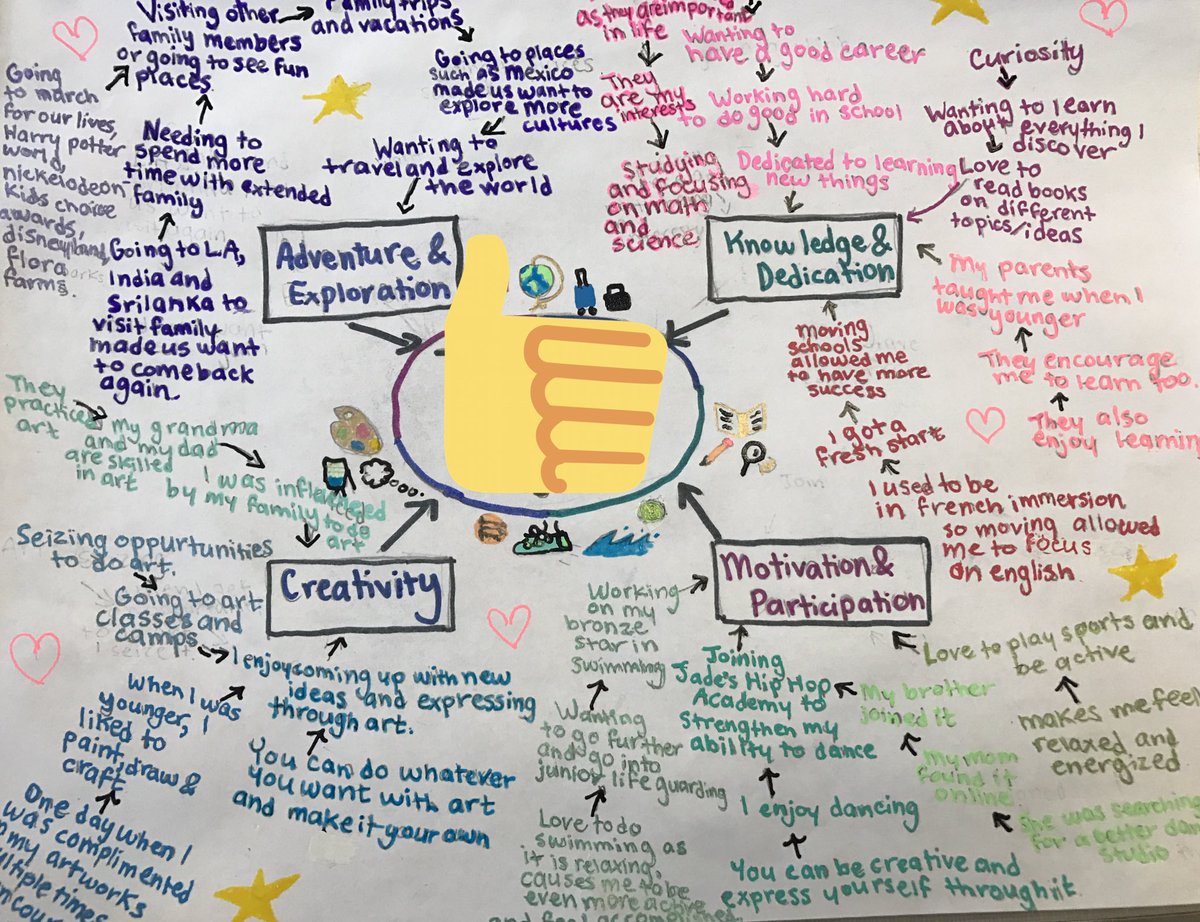 Visiting other
family members
or going to see fun
places.
Family trips
and vacations
Going to places
such as mexico
made us want to
explore more
cultures
Wanting to
travel and explore
the world
Going
to march
for our lives,
Harry potter
world,
nickelodeon
kids choice
awards,
disneyland,
flora
farms.
Needing to
spend more
time with extended
family
Going to L.A,
India and
Srilanka to
visit family
made us want
to come back
again.
Adventure &
Exploration
as they are important
in life
They
are my
interests
Studying
and focusing
on math
and
science
Wanting to
have a good career
Working hard
to do good in school
Dedicated to learning
new things
Curiosity
Wanting to learn
about everything I
discover
Love to
read books
on different
topics/ideas
Knowledge &
Dedication
My parents
taught me when I
was younger
They encourage
me to learn too.
They also
enjoy learning
moving
schools
allowed me
to have more
success
I got a
fresh start
I used to be
in french immersion
so moving allowed
me to focus
on english
They
practiced
art
my grandma
and my dad
are skilled
in art
I was influenced
by my family to do
art
Seizing oppurtunities
to do art.
Going to art
classes and
camps
Creativity
I enjoy coming up with new
ideas and expressing
through art.
When I was
younger, I
liked to
paint, draw &
craft
One day when I
was complimented
on my artworks
multiple times
You can do whatever
you want with art
and make it your own
Motivation &
Participation
Working
on my
bronze
star in
swimming
Wanting
to go further
and go into
junior life guarding
Love to do
swimming as
it is relaxing,
causes me to be
even more active
and feel accomplished
Joining
Jade's Hip Hop
Academy to
strengthen my
ability to dance
I enjoy dancing
You can be creative and
express yourself through it.
My brother
joined it
my mom
found it
online
She was searching
for a better dance
studio
Love to play sports and
be active
makes me feel
relaxed and
energized